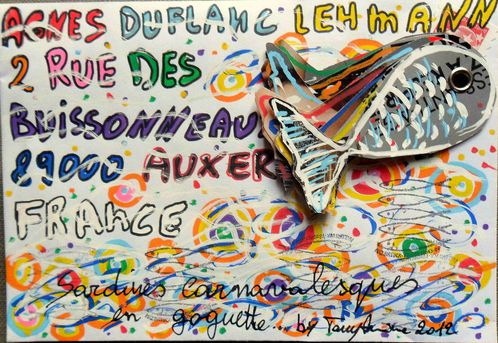 AGNES DUBLANC LEHMANN
2 RUE DES
BUISSONNEAU
89000 AUXER
FRANCE
Sardines carnavalesques
en goguette... by 2012